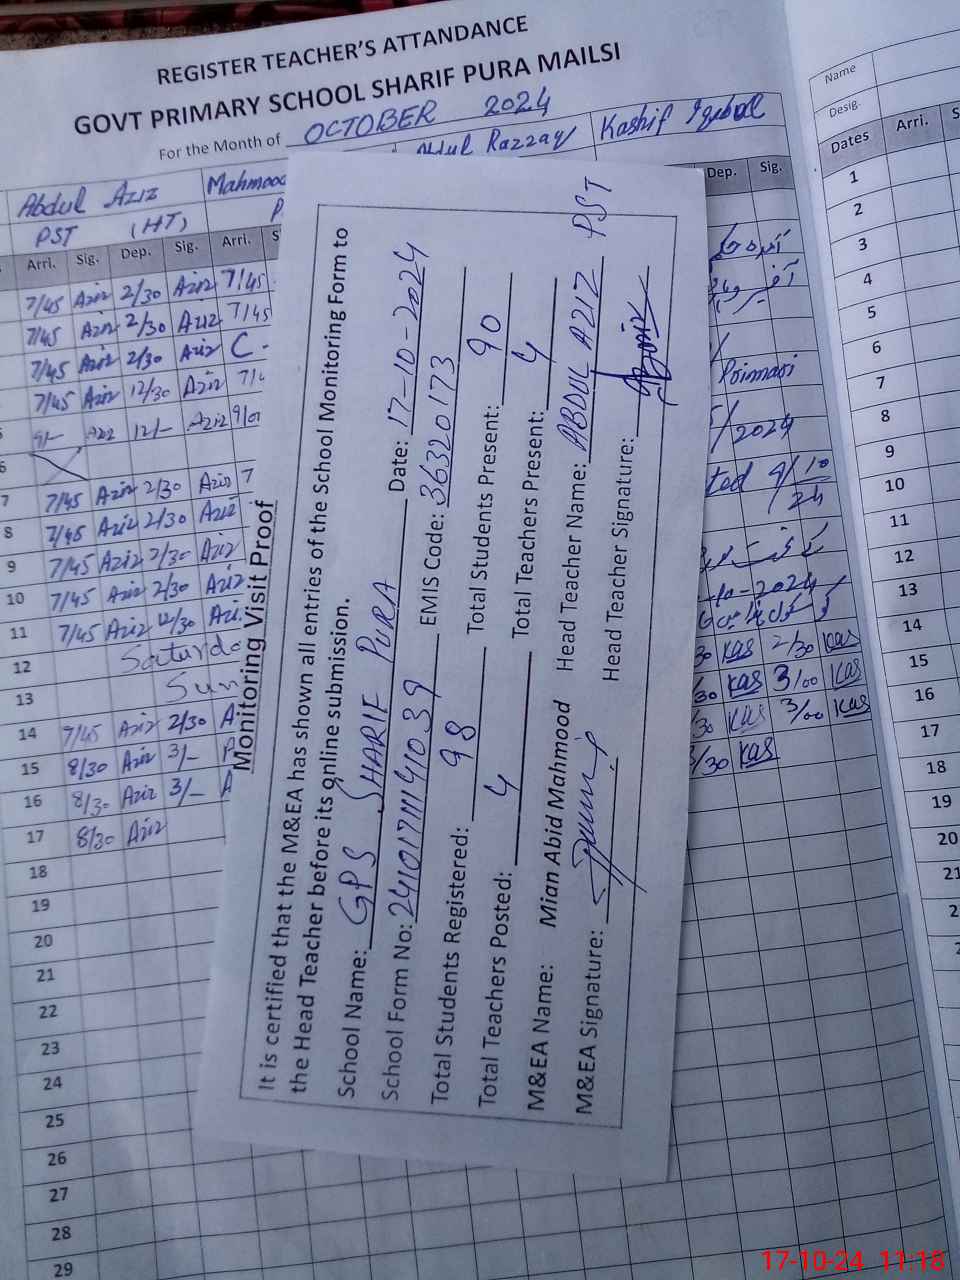 REGISTER TEACHER'S ATTANDANCE
GOVT PRIMARY SCHOOL SHARIF PURA MAILSI
For the Month of OCTOBER 2024
Abdul Aziz Mahmood Abdul Razzaq Kashif Iqbal
PST (HT) P
Arri. Sig. Dep. Sig. Arri. S Dep. Sig.
7/45 Aziz 2/30 Aziz 7/45
7/45 Aziz 2/30 Aziz 7/45
7/45 Aziz 2/30 Aziz C
7/45 Aziz 12/30 Aziz
9/- Aziz 12/- Aziz
6
7 7/45 Aziz 2/30 Aziz 7
8 7/45 Aziz 2/30 Aziz
9 7/45 Aziz 2/30 Aziz
10 7/45 Aziz 2/30 Aziz
11 7/45 Aziz 12/30 Azi
12 Saturda
13 Sun
14 7/45 Aziz 2/30 A
15 8/30 Aziz 3/-
16 8/30 Aziz 3/- A
17 8/30 Aziz
18
19
20
21
22
23
24
25
26
27
28
29
/2024
ted 9/10/24
-10-2024
30 KAS 2/30 KAS
/30 KAS 3/00 KAS
/30 KAS 3/00 KAS
/30 KAS
Monitoring Visit Proof
It is certified that the M&EA has shown all entries of the School Monitoring Form to
the Head Teacher before its online submission.
School Name: GPS SHARIF PURA Date: 17-10-2024
School Form No: 2410171114039 EMIS Code: 36320173
Total Students Registered: 98 Total Students Present: 90
Total Teachers Posted: 4 Total Teachers Present: 4
M&EA Name: Mian Abid Mahmood Head Teacher Name: ABDUL AZIZ PST
M&EA Signature: Head Teacher Signature:
Name
Desig.
Dates Arri. S
1
2
3
4
5
6
7
8
9
10
11
12
13
14
15
16
17
18
19
20
21
17-10-24 11:18